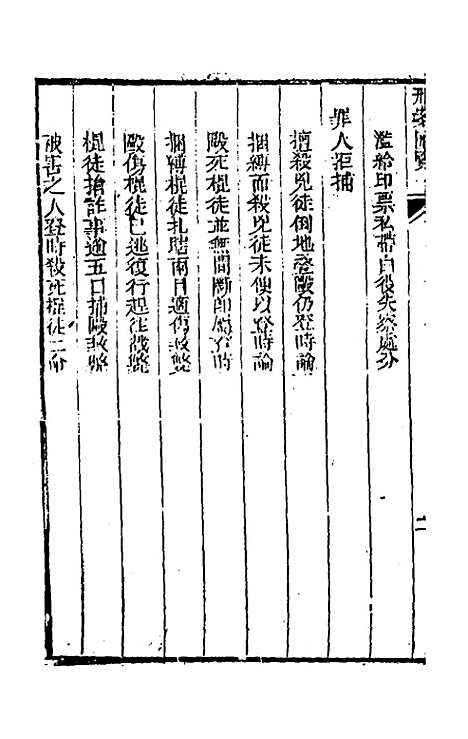 濫給印票私帶白役失察處分
罪人拒捕
擅殺兇徒倒地登毆仍登時論
捆縛而殺兇徒未便以登時論
毆死棍徒並無間斷即屬登時
捆縛棍徒扎瞎兩目適傷致斃
毆傷棍徒已逃復行趕往戳斃
棍徒搶詐事過五日捕毆致斃
被害之人登時殺死棍徒二命